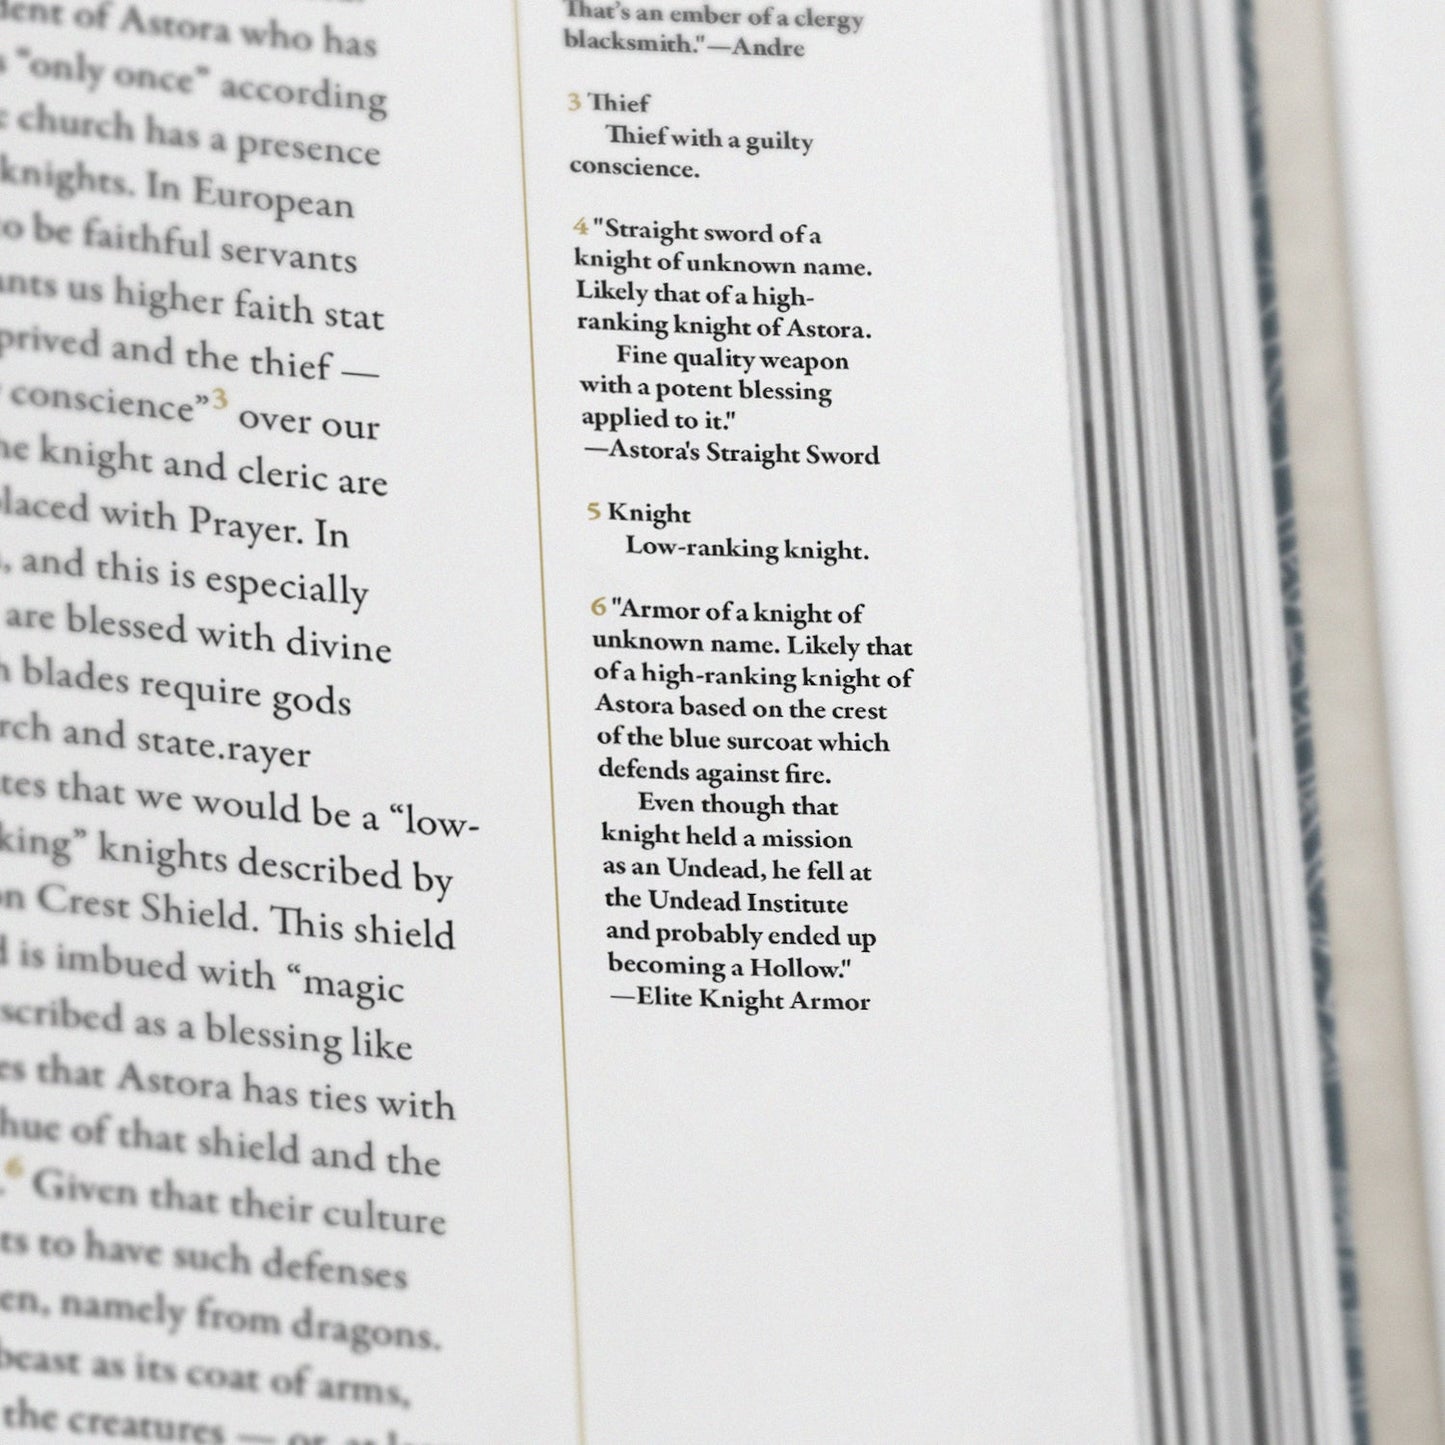 dent of Astora who has
"only once" according
church has a presence
knights. In European
to be faithful servants
us higher faith stat
and the thief —
conscience"3 over our
knight and cleric are
with Prayer. In
and this is especially
are blessed with divine
blades require gods
and state.rayer
that we would be a "low-
king" knights described by
Crest Shield. This shield
is imbued with "magic
as a blessing like
that Astora has ties with
hue of that shield and the
6 Given that their culture
to have such defenses
namely from dragons.
beast as its coat of arms,
the creatures —
That's an ember of a clergy
blacksmith."—Andre
3 Thief
Thief with a guilty
conscience.
4 "Straight sword of a
knight of unknown name.
Likely that of a high-
ranking knight of Astora.
Fine quality weapon
with a potent blessing
applied to it."
—Astora's Straight Sword
5 Knight
Low-ranking knight.
6 "Armor of a knight of
unknown name. Likely that
of a high-ranking knight of
Astora based on the crest
of the blue surcoat which
defends against fire.
Even though that
knight held a mission
as an Undead, he fell at
the Undead Institute
and probably ended up
becoming a Hollow."
—Elite Knight Armor